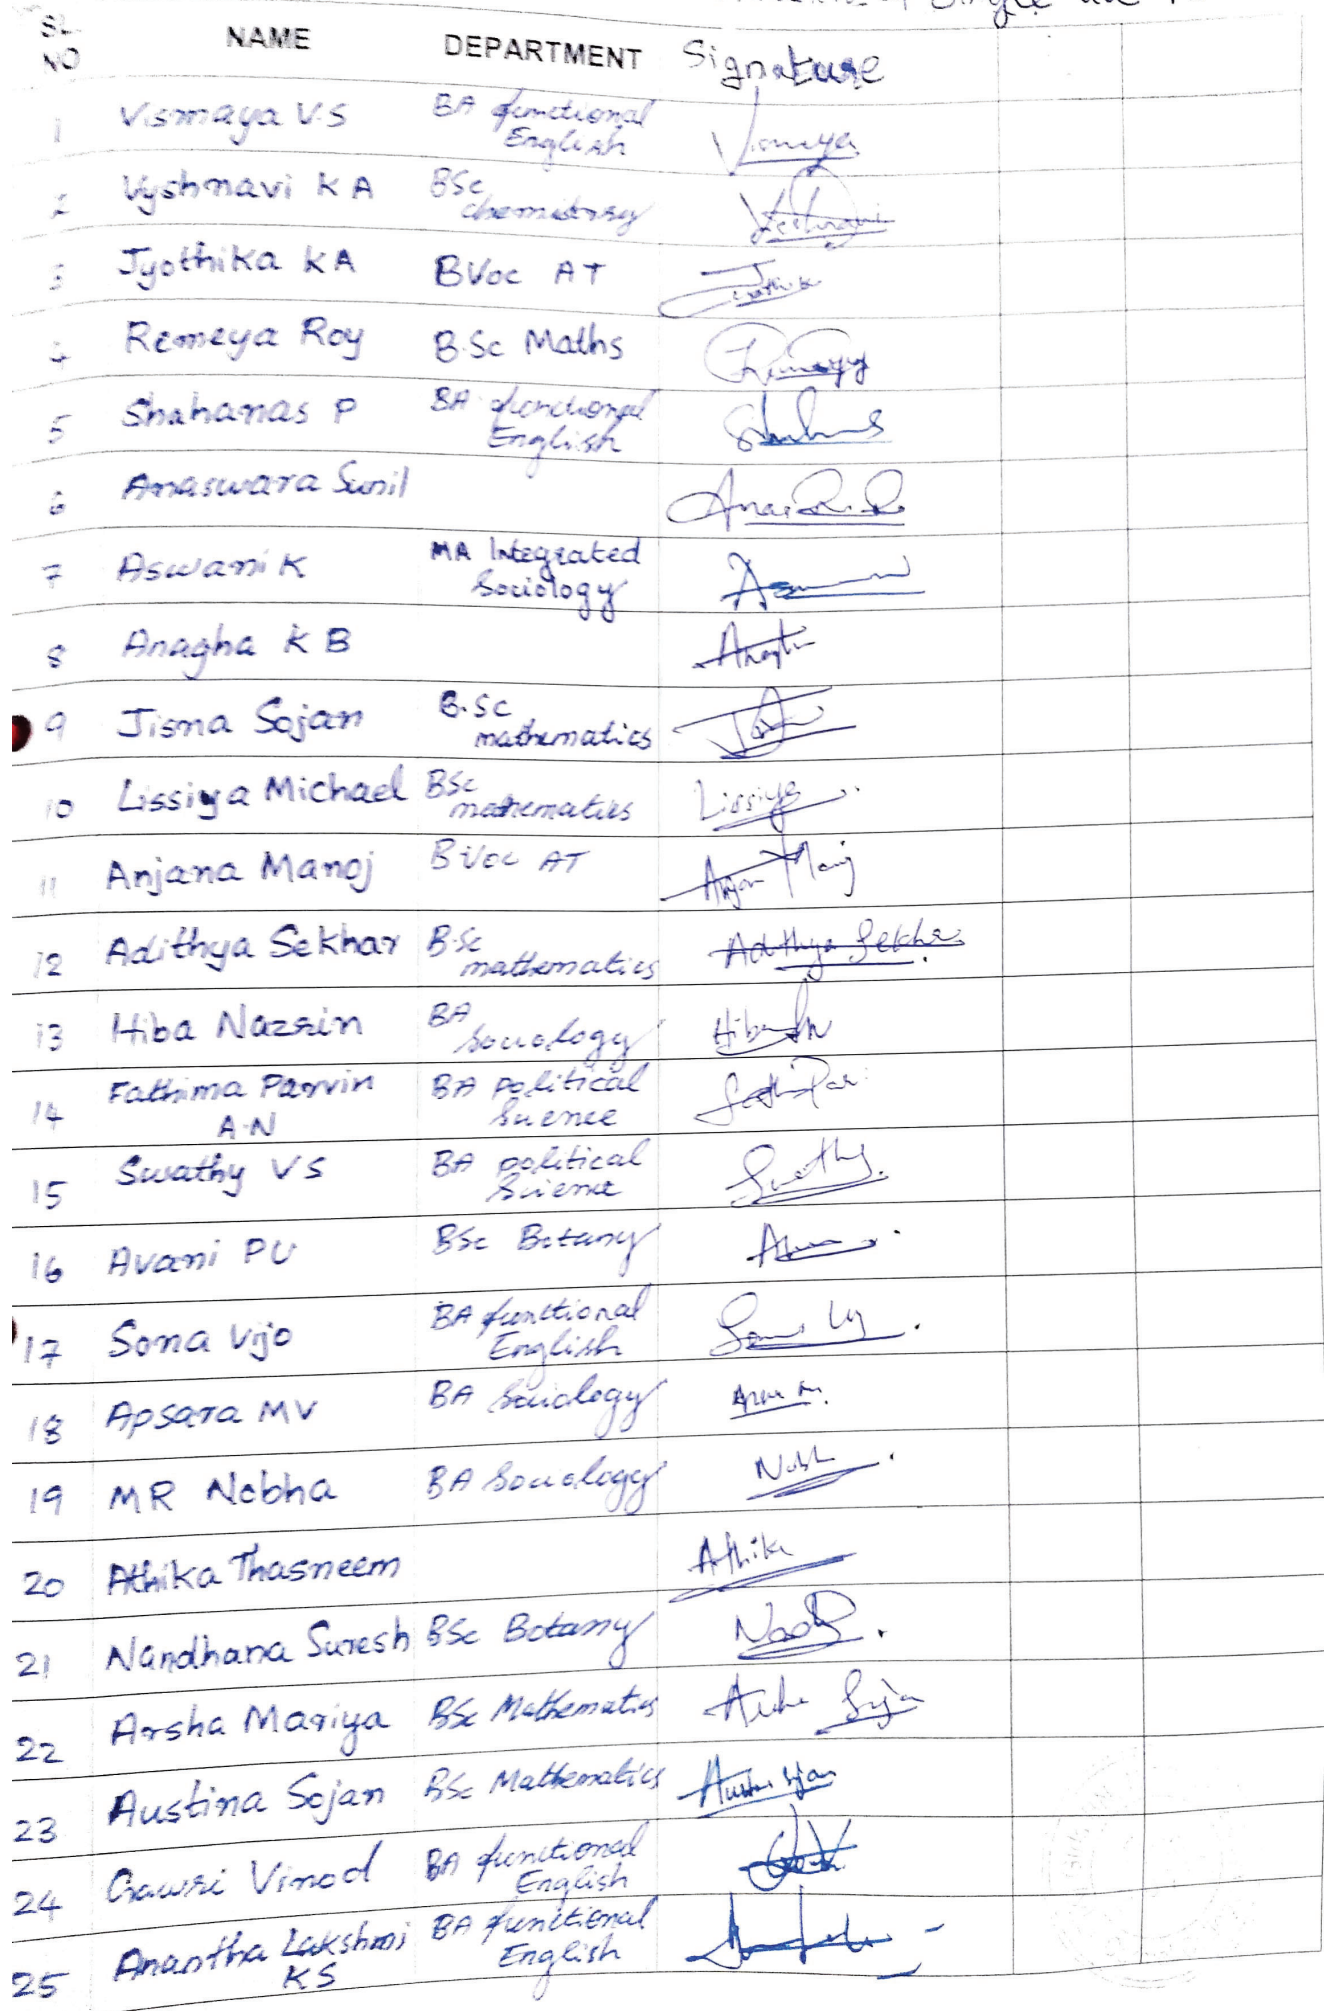 Single
SL NO NAME DEPARTMENT Signature
1 Vismaya V.S BA functional English Vismaya
2 Vyshnavi K A BSc chemistry
3 Jyothika K A BVoc AT
4 Remeya Roy B.Sc Maths
5 Shahanas P BA functional English
6 Anaswara Sunil
7 Aswani K MA Integrated Sociology
8 Anagha K B
9 Jisma Sojan B.Sc mathematics
10 Lissiya Michael BSc mathematics Lissiya
11 Anjana Manoj B.Voc AT
12 Adithya Sekhar B.Sc mathematics Adithya Sekhar
13 Hiba Nazrin BA Sociology
14 Fathima Parvin A.N BA political Science
15 Swathy V S BA political Science Swathy
16 Avani P U BSc Botany
17 Sona Vijo BA functional English
18 Apsara M V BA Sociology
19 M R Nebha BA Sociology
20 Athika Thasneem Athika
21 Nandhana Suresh BSc Botany
22 Arsha Mariya BSc Mathematics
23 Austina Sojan BSc Mathematics
24 Gawri Vinod BA functional English
25 Anantha Lakshmi K S BA functional English